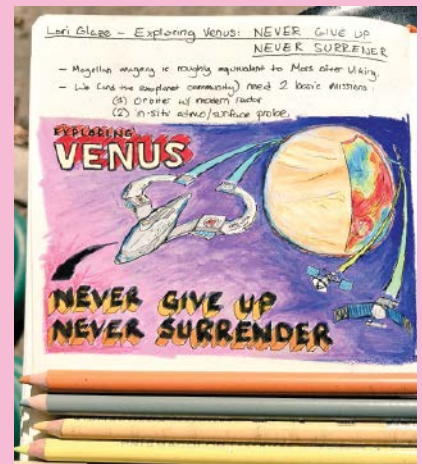 Lori Glaze - Exploring Venus: NEVER GIVE UP
NEVER SURRENER
- Magellan imagery is roughly equivalent to Mars after Viking.
- We (and the exoplanet community) need 2 basic missions:
(1) Orbiter w/ modern radar
(2) in-situ atmo/surface probe
EXPLORING
VENUS
NEVER GIVE UP
NEVER SURRENDER